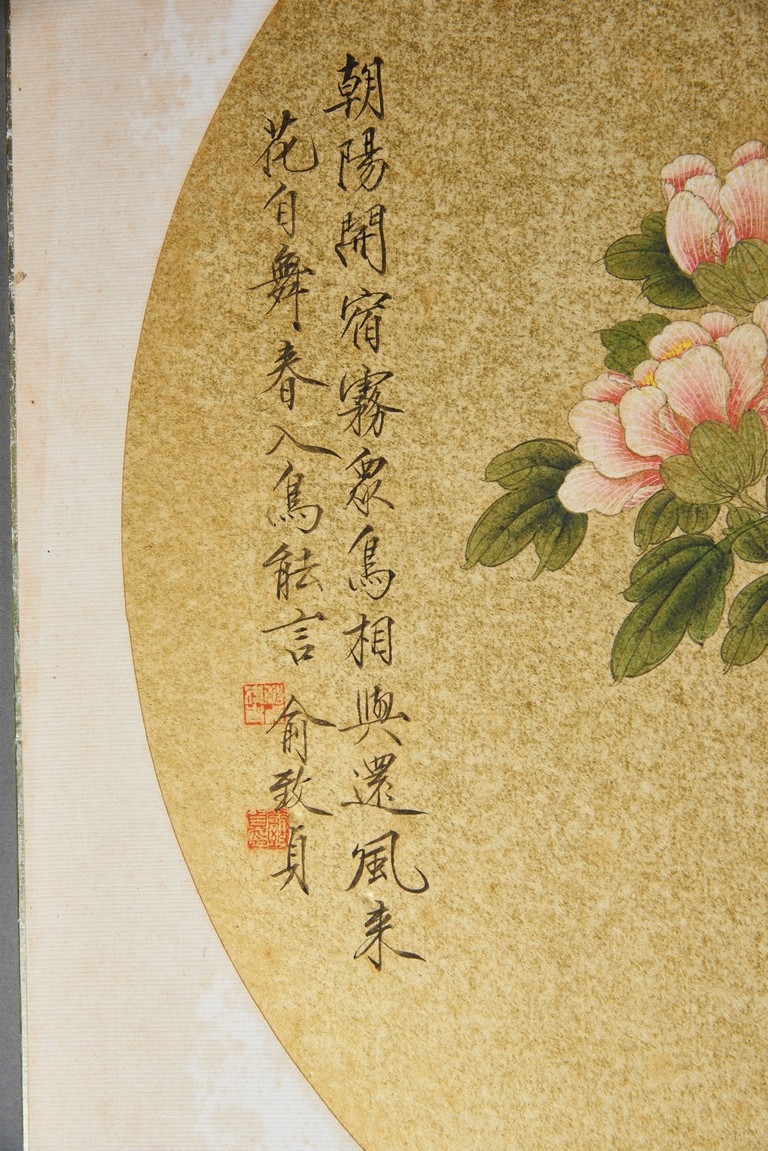 朝陽開宿霧眾鳥相與還風来
花自舞春入鳥能言 俞致貞